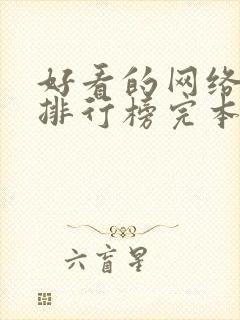 好看的网络
排行榜完本
六盲星